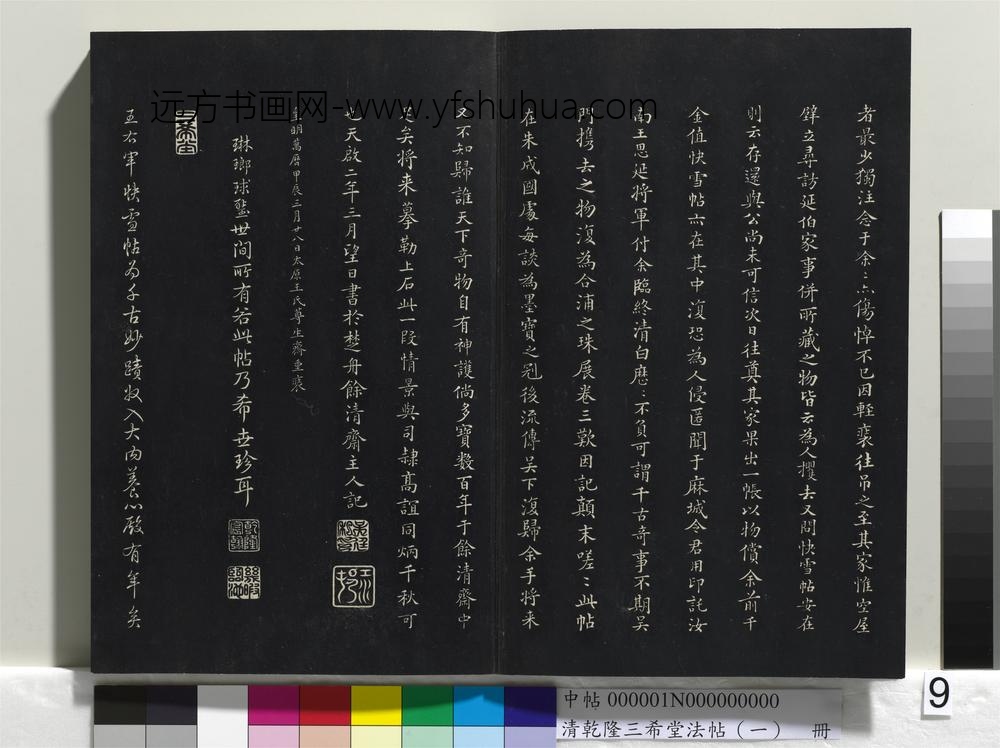 者最少獨注念于余余亦傷悼不已因輕裘往吊之至其家惟空屋
壁立尋訪延伯家事併所藏之物皆云為人攫去又問快雪帖安在
則云存還與公尚未可信次日往奠其家果出一帳以物償余前千
金值快雪帖亦在其中復恐為人侵匿聞于麻城令君用印託汝
南王思延將軍付余臨終清白歷歷不負可謂千古奇事不期吳
門攜去之物復為合浦之珠展卷三歎因記顛末嗟嗟此帖
在朱成國處每談為墨寶之冠後流傳吳下復歸余手將來
又不知歸誰天下奇物自有神護倘多寶數百年于餘清齋中
足矣將來摹勒上石此一段情景與司隸高誼同炳千秋可
也天啟二年三月望日書於楚舟餘清齋主人記
明萬曆甲辰三月廿八日太原王氏尊生齋重裝
琳瑯球璧世間所有若此帖乃希世珍耳
王右軍快雪帖為千古妙蹟收入大內養心殿有年矣
远方书画网-www.yfshuhua.com
中帖 000001N000000000
清乾隆三希堂法帖（一） 冊
9